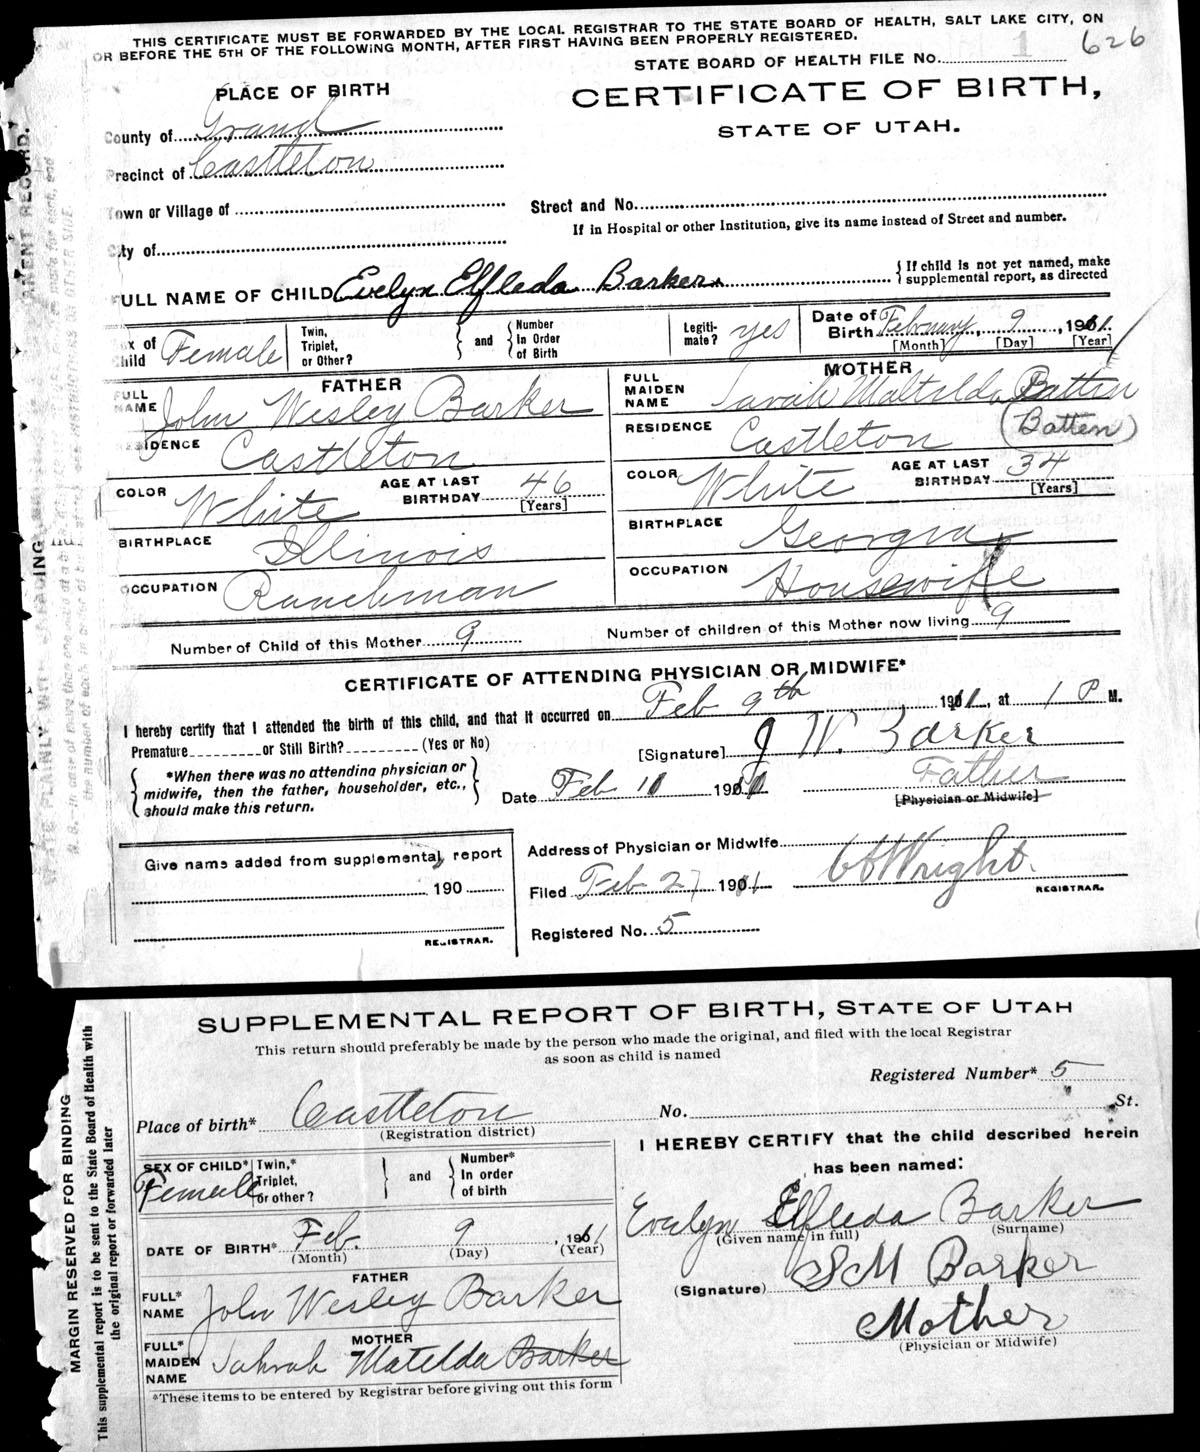 THIS CERTIFICATE MUST BE FORWARDED BY THE LOCAL REGISTRAR TO THE STATE BOARD OF HEALTH, SALT LAKE CITY, ON
OR BEFORE THE 5TH OF THE FOLLOWING MONTH, AFTER FIRST HAVING BEEN PROPERLY REGISTERED.
STATE BOARD OF HEALTH FILE NO. 1 626
PLACE OF BIRTH
CERTIFICATE OF BIRTH,
STATE OF UTAH.
County of Grand
Precinct of Castleton
Town or Village of
Street and No.
If in Hospital or other Institution, give its name instead of Street and number.
City of
FULL NAME OF CHILD Evelyn Elfleda Barker
If child is not yet named, make supplemental report, as directed
Sex of Child Female
Twin, Triplet, or Other?
and
Number In Order of Birth
Legiti-mate? yes
Date of Birth February, 9, 1911.
[Month] [Day] [Year]
FATHER
FULL NAME John Wesley Barker
RESIDENCE Castleton
COLOR White
AGE AT LAST BIRTHDAY 46
[Years]
BIRTHPLACE Illinois
OCCUPATION Ranchman
MOTHER
FULL MAIDEN NAME Sarah Maltilda Batten
(Batten)
RESIDENCE Castleton
COLOR White
AGE AT LAST BIRTHDAY 34
[Years]
BIRTHPLACE Georgia
OCCUPATION Housewife
Number of Child of this Mother 9
Number of children of this Mother now living 9
CERTIFICATE OF ATTENDING PHYSICIAN OR MIDWIFE*
I hereby certify that I attended the birth of this child, and that it occurred on Feb 9th 1911, at 1 P M.
Premature or Still Birth? (Yes or No)
[Signature] J W. Barker
*When there was no attending physician or midwife, then the father, householder, etc., should make this return.
Date Feb 11 1911
Father
[Physician or Midwife]
Give name added from supplemental report
190
REGISTRAR.
Address of Physician or Midwife
Filed Feb 27 1911 Wright.
REGISTRAR.
Registered No. 5
MENT RECORD.
SUPPLEMENTAL REPORT OF BIRTH, STATE OF UTAH
This return should preferably be made by the person who made the original, and filed with the local Registrar
as soon as child is named
Registered Number* 5
Place of birth* Castleton No. St.
(Registration district)
SEX OF CHILD* Female
Twin,* Triplet, or other?
and
Number* In order of birth
DATE OF BIRTH* Feb. 9, 1911
(Month) (Day) (Year)
FATHER
FULL* NAME John Wesley Barker
MOTHER
FULL* MAIDEN NAME Sahrah Matelda Barker
*These items to be entered by Registrar before giving out this form
I HEREBY CERTIFY that the child described herein
has been named:
Evelyn Elfleda Barker
(Given name in full) (Surname)
(Signature) S M Barker
Mother
(Physician or Midwife)
MARGIN RESERVED FOR BINDING
This supplemental report is to be sent to the State Board of Health with
the original report or forwarded later